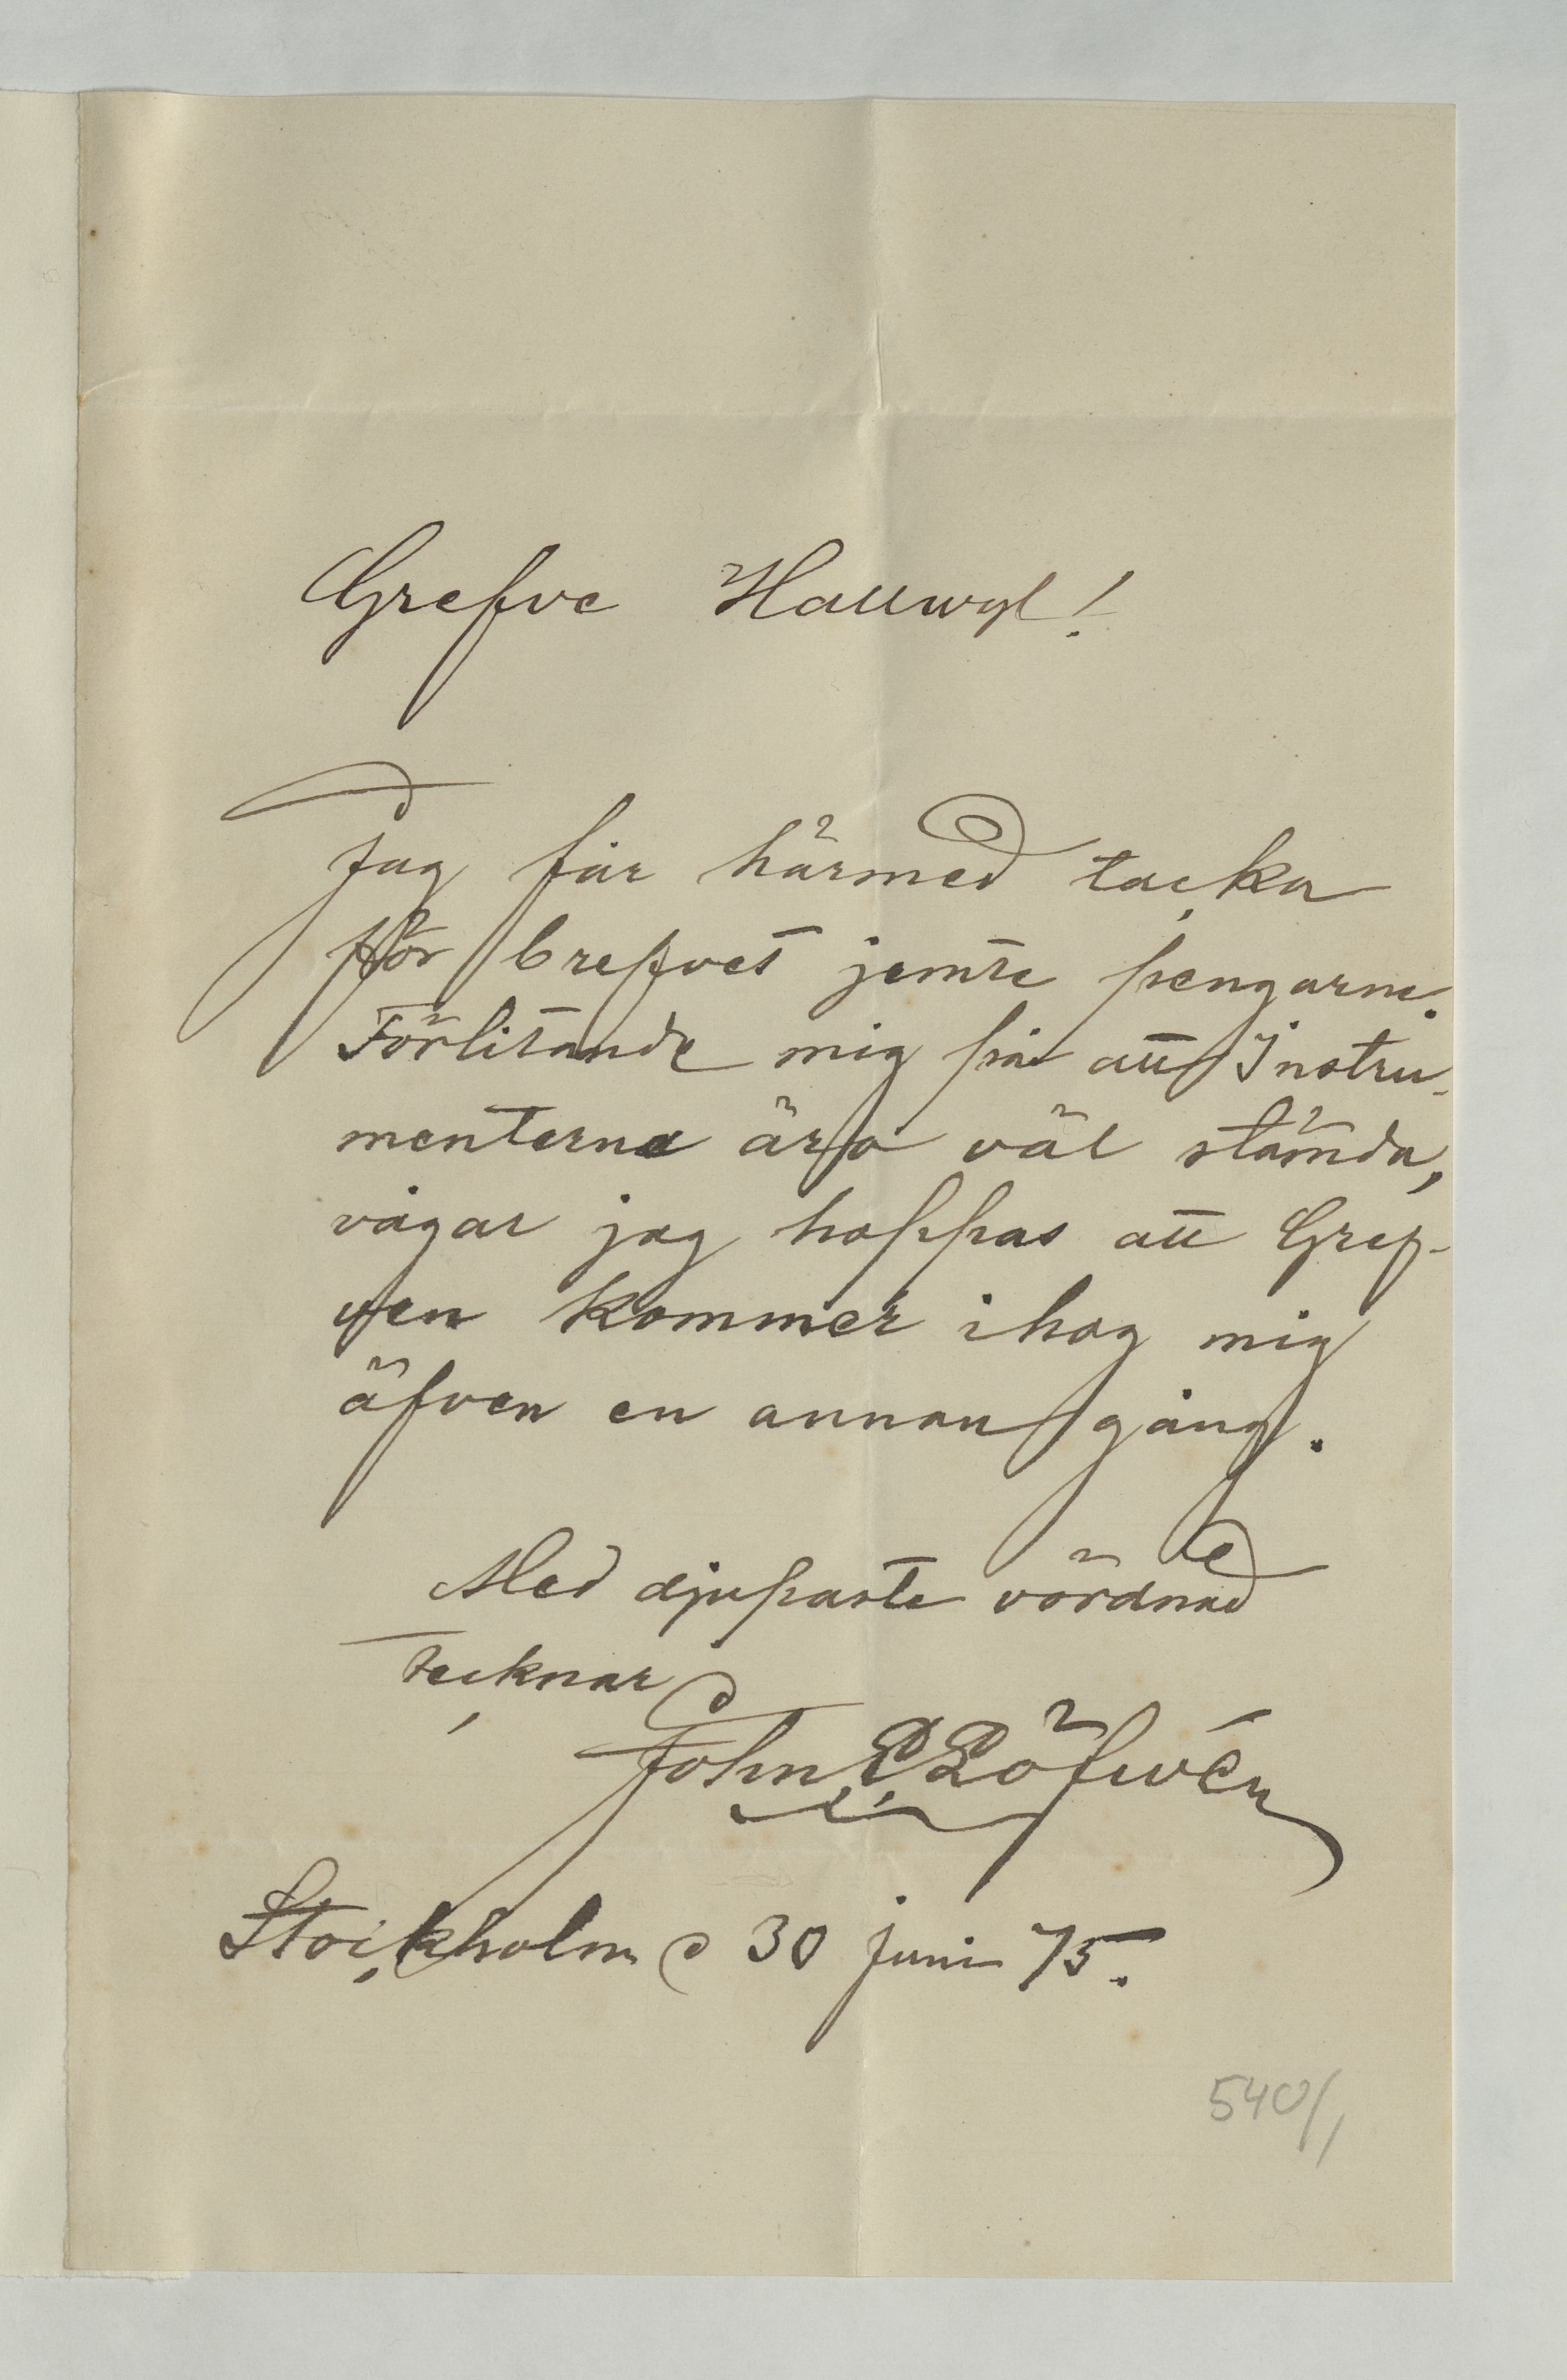 Grefve Hallwyl!
Jag får härmed tacka
för brefvet jemte pengarne.
Förlitande mig på att Instru-
menterna äro väl stämda,
vågar jag hoppas att Gref-
ven kommer ihog mig
äfven en annan gång.
Med djupaste vördnad
tecknar
John E Löfvén
Stockholm d 30 juni 75.
540/1